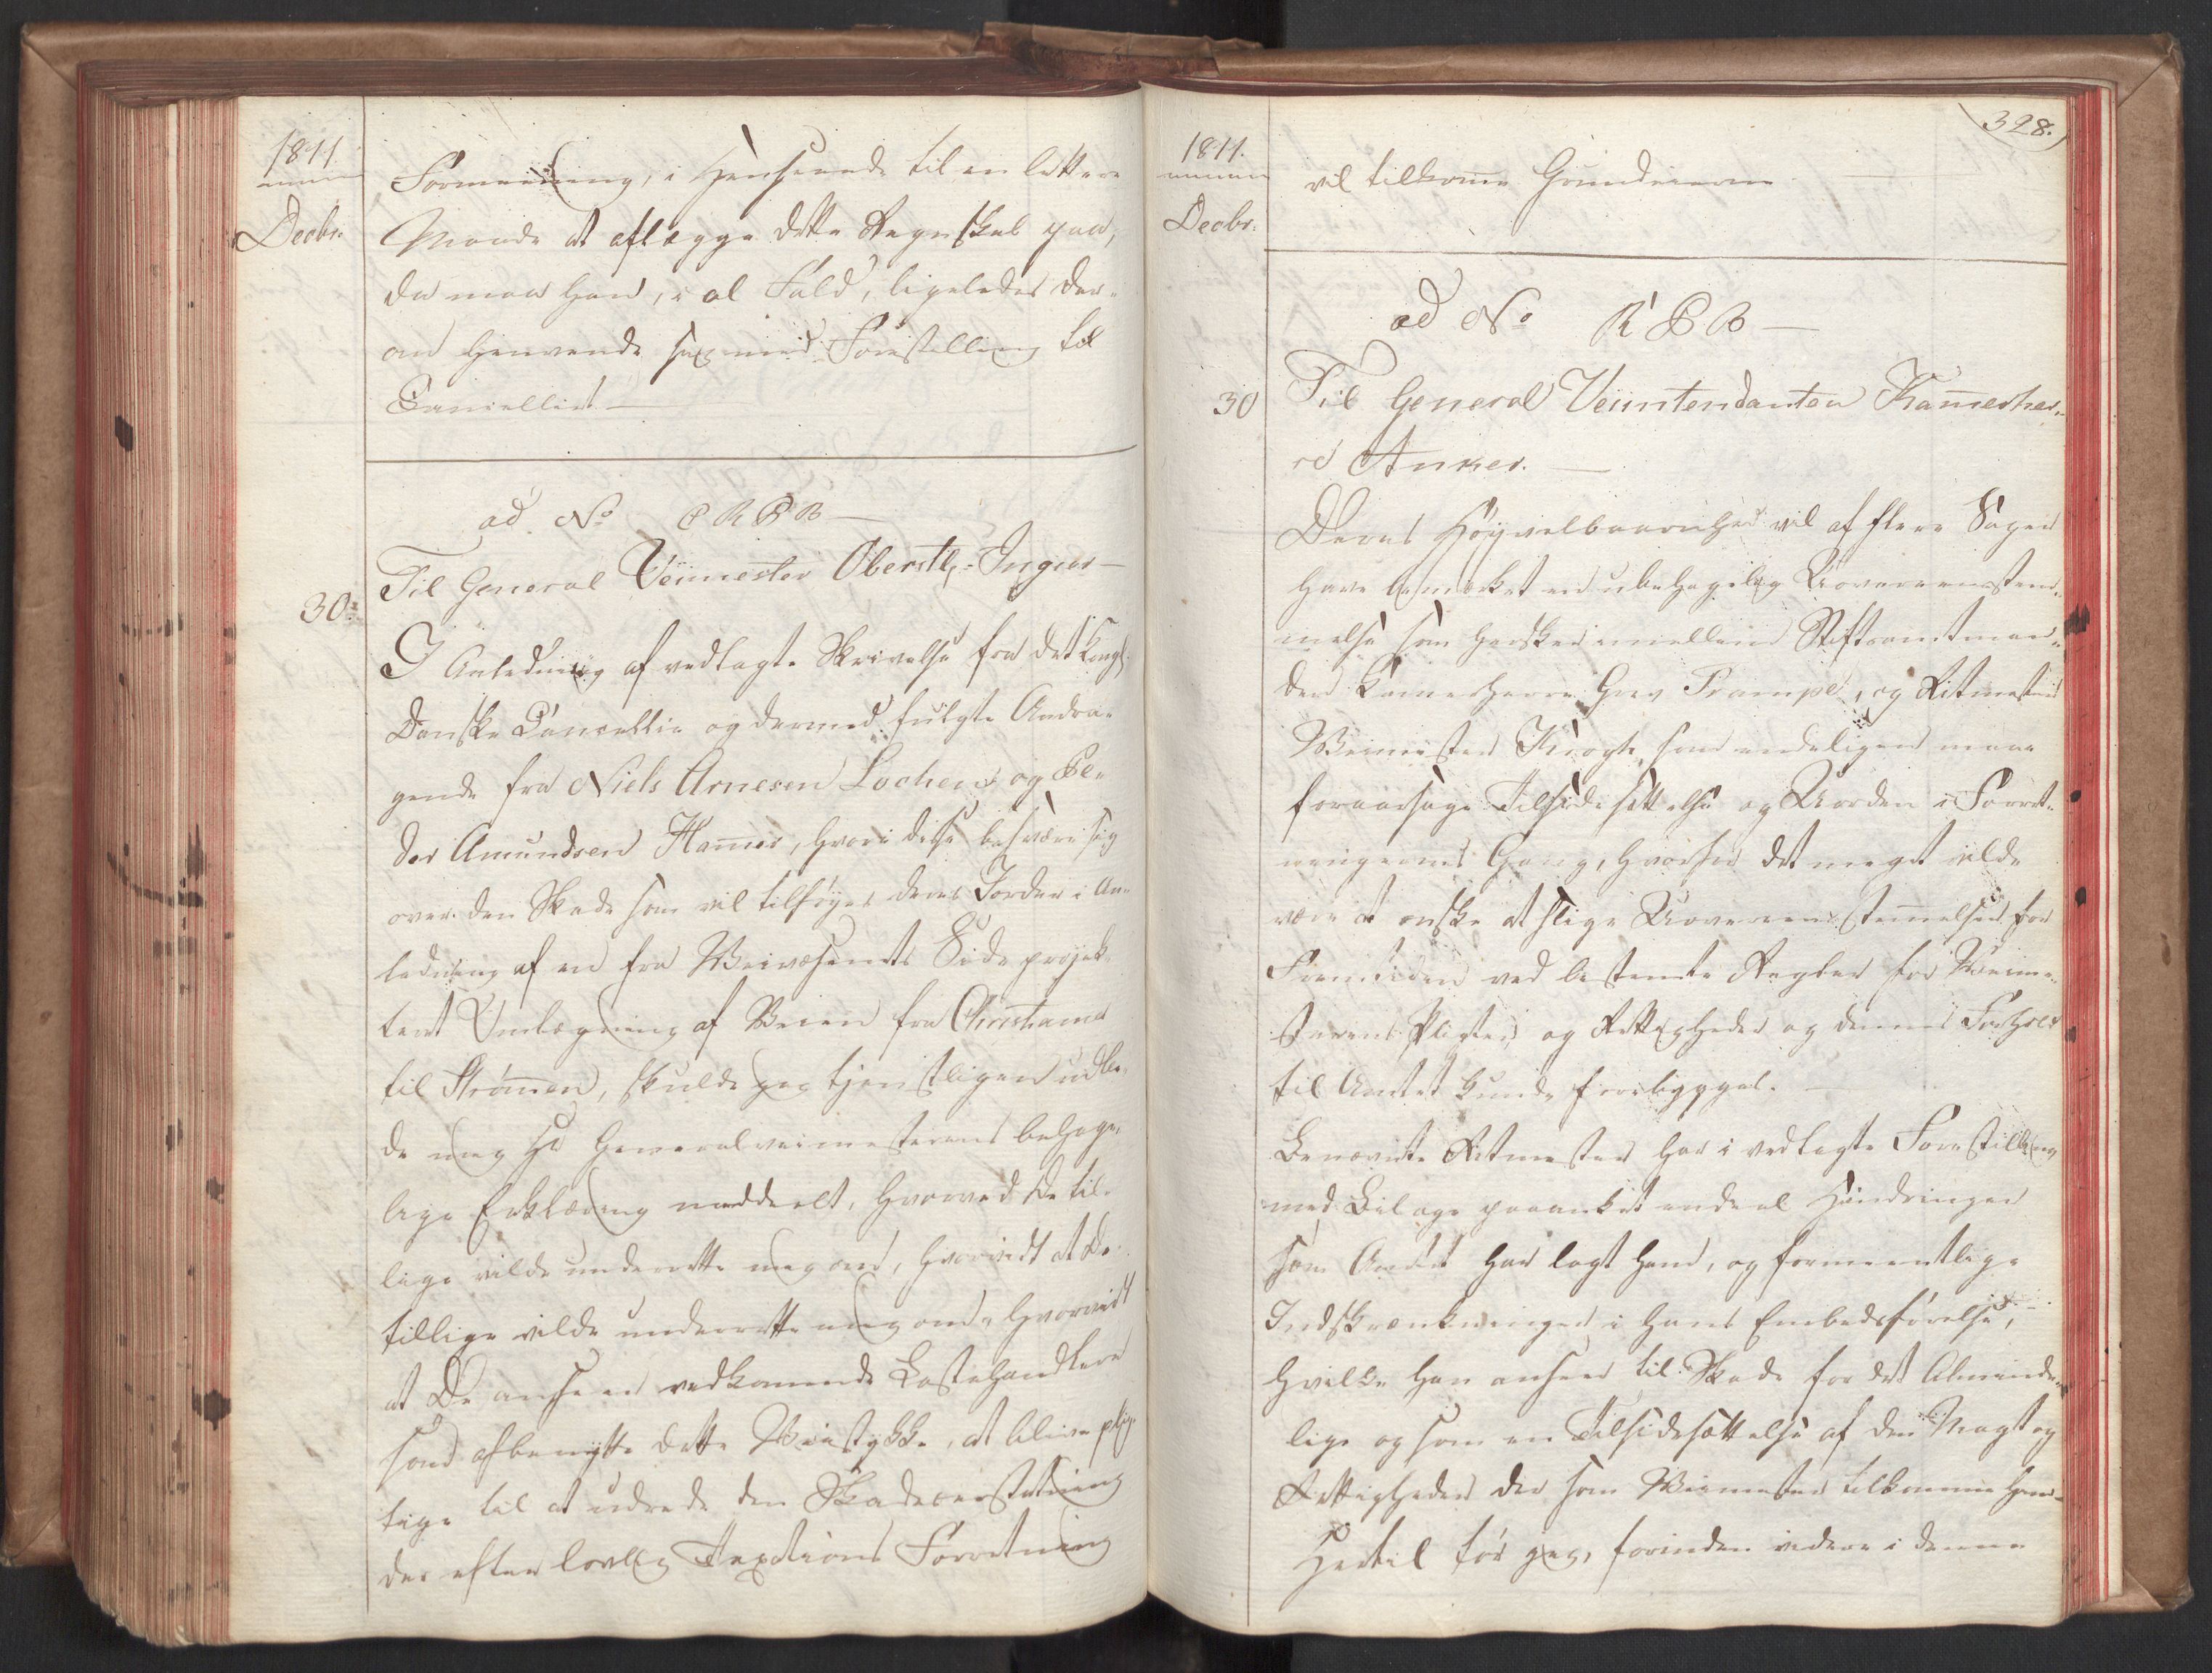 1811.
Decbr.
Formening, i Henseende til en lettere
Maade at aflægge dette Regnskab paa,
da maa han, i al Fald, ligeledes der-
om henvende sig med Forestilling til
Cancelliet —
ad No C R P B —
Til General Veimester Oberstl. Ingier —
30:
I Anledning af vedlagte Skrivelse fra det kongl.
Danske Cancellie og dermed fulgte Andra-
gende fra Niels Arnesen Lochen og Pe-
der Amundsen Hamer, hvori disse besvære sig
over den Skade som vil tilføyes deres Jorder i An-
ledning af en fra Veivæsenets Side projek-
teret Omlægning af Veien fra Christiania
til Strømmen, skulde jeg tjenstligen udbe-
de mig Hr Generalveimesterens behage-
lige Erklæring meddeelt, hvorved De til-
lige vilde underrette mig om, hvorvidt at De
tillige vilde underrette mig om, hvorvidt
at De anseer vedkommende Lastehandlere
som afbenytte dette Veistykke, at blive plig-
tige til at udrede den Skadeserstatning
der efter lovlig Taxations Forretning
328.
1811.
Decbr.
vil tilkomme Grundeierne
ad No R P B —
30
Til General Veiintendanten Kammerher-
re Anker. —
Deres Høyvelbaarenhed vil af flere Sager
have bemærket en ubehagelig Uovereensstem-
melse som hersker imellem Stiftsamtman-
den Kammerherre Grev Trampe, og Ritmester
Veimester Krogh, som endeligen maae
foraarsage Tilsidesættelse og Uorden i Forret-
ningernes Gang, hvorfor det meget vilde
være at ønske at slige Uovereensstemmelser for
Fremtiden ved bestemte Regler for Veime-
sterens Pligter og Rettigheder og dennes Forhold
til Amtet kunde forebygges. —
Benævnte Ritmester har i vedlagte Forestilling
med Bilage paaanket endeel Hindringer
som Amtet har lagt ham, og formeentlige
Indskrænkninger i hans Embedsførelse,
hvilke han anseer til Skade for det Alminde-
lige og som en Tilsidesættelse af den Magt og
Rettigheder der som Veimester tilkomme ham —
Hertil tør jeg, forinden videre i denne